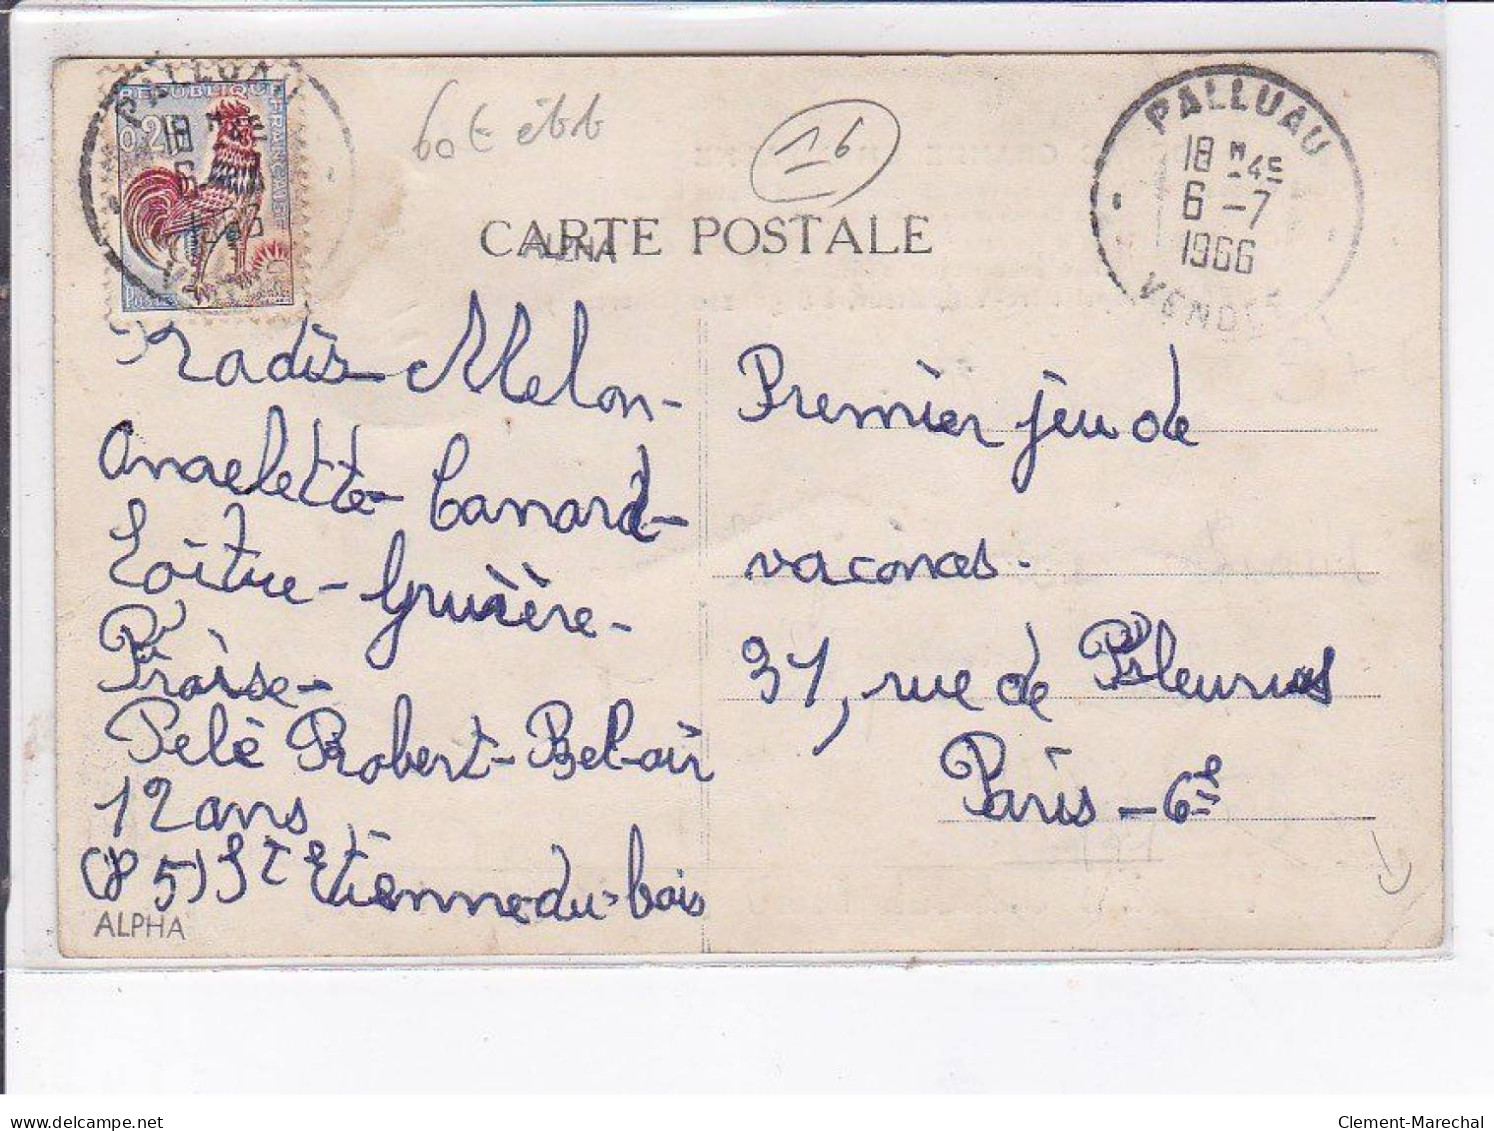 PALLUA
REPUBLIQUE FRANCAISE
0,2
18
Postes
bot ébb
16
PALLUAU
18 H 45
6 -7
1966
VENDEE
CARTE POSTALE
ALPHA
Radis - Melon -
Omelette - Canard -
Loitue - Gruière -
Fraise -
Pelé Robert - Bel-air
12 ans
(85) St Etienne-du-bois
ALPHA
Premier jeu de
vacances.
31, rue de Fleurus
Paris - 6e
delcampe.net
Clement-Marechal